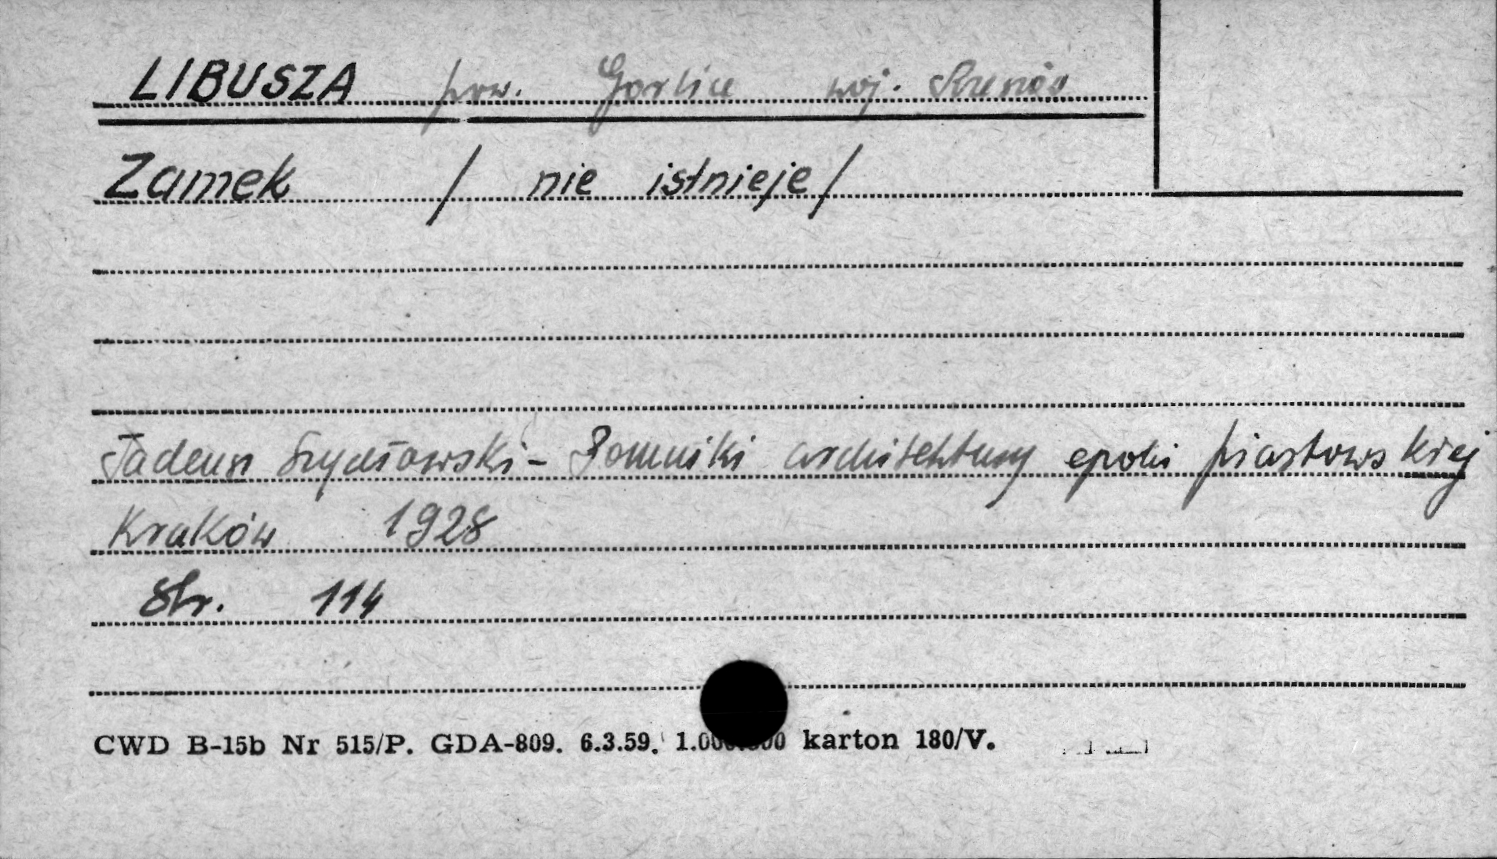 LIBUSZA pow. Gorlice woj. Rzeszów
Zamek / nie istnieje /
Tadeusz Szydłowski - Pomniki architektury epoki piastowskiej
Kraków 1928
Str. 114
CWD B-15b Nr 515/P. GDA-809. 6.3.59. karton 180/V.